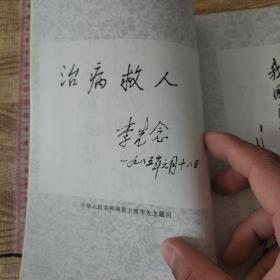 治病救人
李先念
一九八五年元月十八日
中华人民共和国前主席李先念题词
我